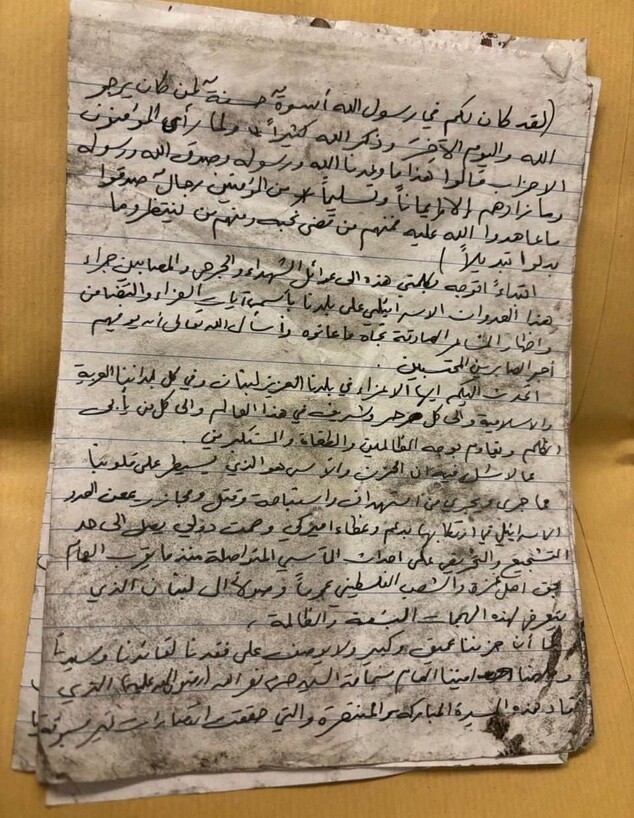 (لقد كان لكم في رسول الله أسوةٌ حسنةٌ لمن كان يرجو
الله واليوم الآخرَ وذكر الله كثيراً * ولما رأى المؤمنون
الاحزاب قالوا هذا ما وعدنا الله ورسوله وصدق الله ورسوله
وما زادهم إلا إيماناً وتسليماً * من المؤمنين رجالٌ صدقوا
ما عاهدوا الله عليه فمنهم من قضى نحبه ومنهم من ينتظر وما
بدلوا تبديلاً)
ابتداءً اتوجه بكلمتي هذه الى عوائل الشهداء والجرحى والمصابين جراء
هذا العدوان الاسرائيلي على بلدنا بأسمى آيات العزاء والتضامن
واظهار المشاعر الصادقة تجاه ما عانوه وأسأل الله تعالى أن يوفيهم
أجر الصابرين المحتسبين.
اتحدث اليكم ايها الاعزاء في بلدنا العزيز لبنان وفي كل بلداننا العربية
والاسلامية والى كل حر وشريف في هذا العالم والى كل من يأبى
الظلم ويقاوم بوجه الظالمين والطغاة والمستكبرين.
مما لا شك فيه ان الحزن والأسى هو الذي يسيطر على قلوبنا
مما جرى ويجري من استهداف واستباحة وقتل ومجازر يمعن العدو
الاسرائيلي في ارتكابها بدعم وغطاء اميركي وصمت دولي يصل الى حد
التشجيع والتحريض على احداث المآسي المتواصلة منذ ما يقرب العام
بحق اهل غزة والشعب الفلسطيني عموماً وصولاً الى لبنان الذي
يتعرض لهذه الهجمات البشعة والظالمة،
كما أن حزننا عميق وكبير ولا يوصف على فقدنا لقائدنا وسيدنا
اميننا العام سماحة السيد حسن نصر الله (رضوان الله عليه) الذي
قاد هذه المسيرة المباركة والمنتصرة والتي حققت انتصارات غير مسبوقة